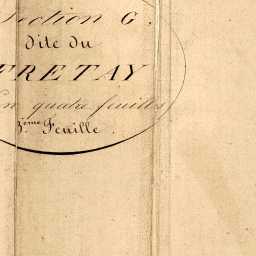 Section G.
dite du
FRETAY
en quatre feuilles
3ème Feuille.